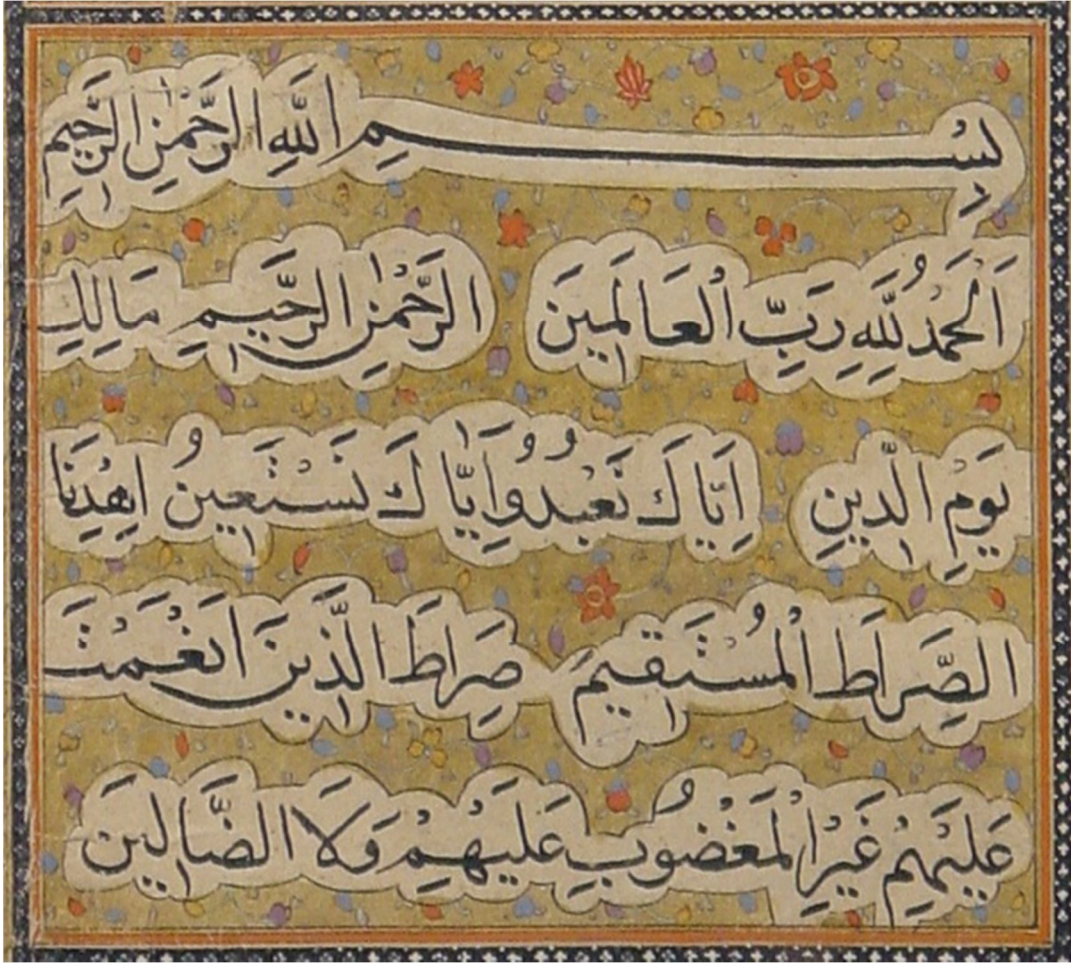 بِسْمِ اللَّهِ الرَّحْمٰنِ الرَّحِيمِ
اَلْحَمْدُ لِلَّهِ رَبِّ الْعَالَمِينَ الرَّحْمٰنِ الرَّحِيمِ مَالِكِ
يَوْمِ الدِّينِ اِيَّاكَ نَعْبُدُ وَاِيَّاكَ نَسْتَعِينُ اِهْدِنَا
الصِّرَاطَ الْمُسْتَقِيمَ صِرَاطَ الَّذِينَ اَنْعَمْتَ
عَلَيْهِمْ غَيْرِ الْمَغْضُوبِ عَلَيْهِمْ وَلَا الضَّالِّينَ